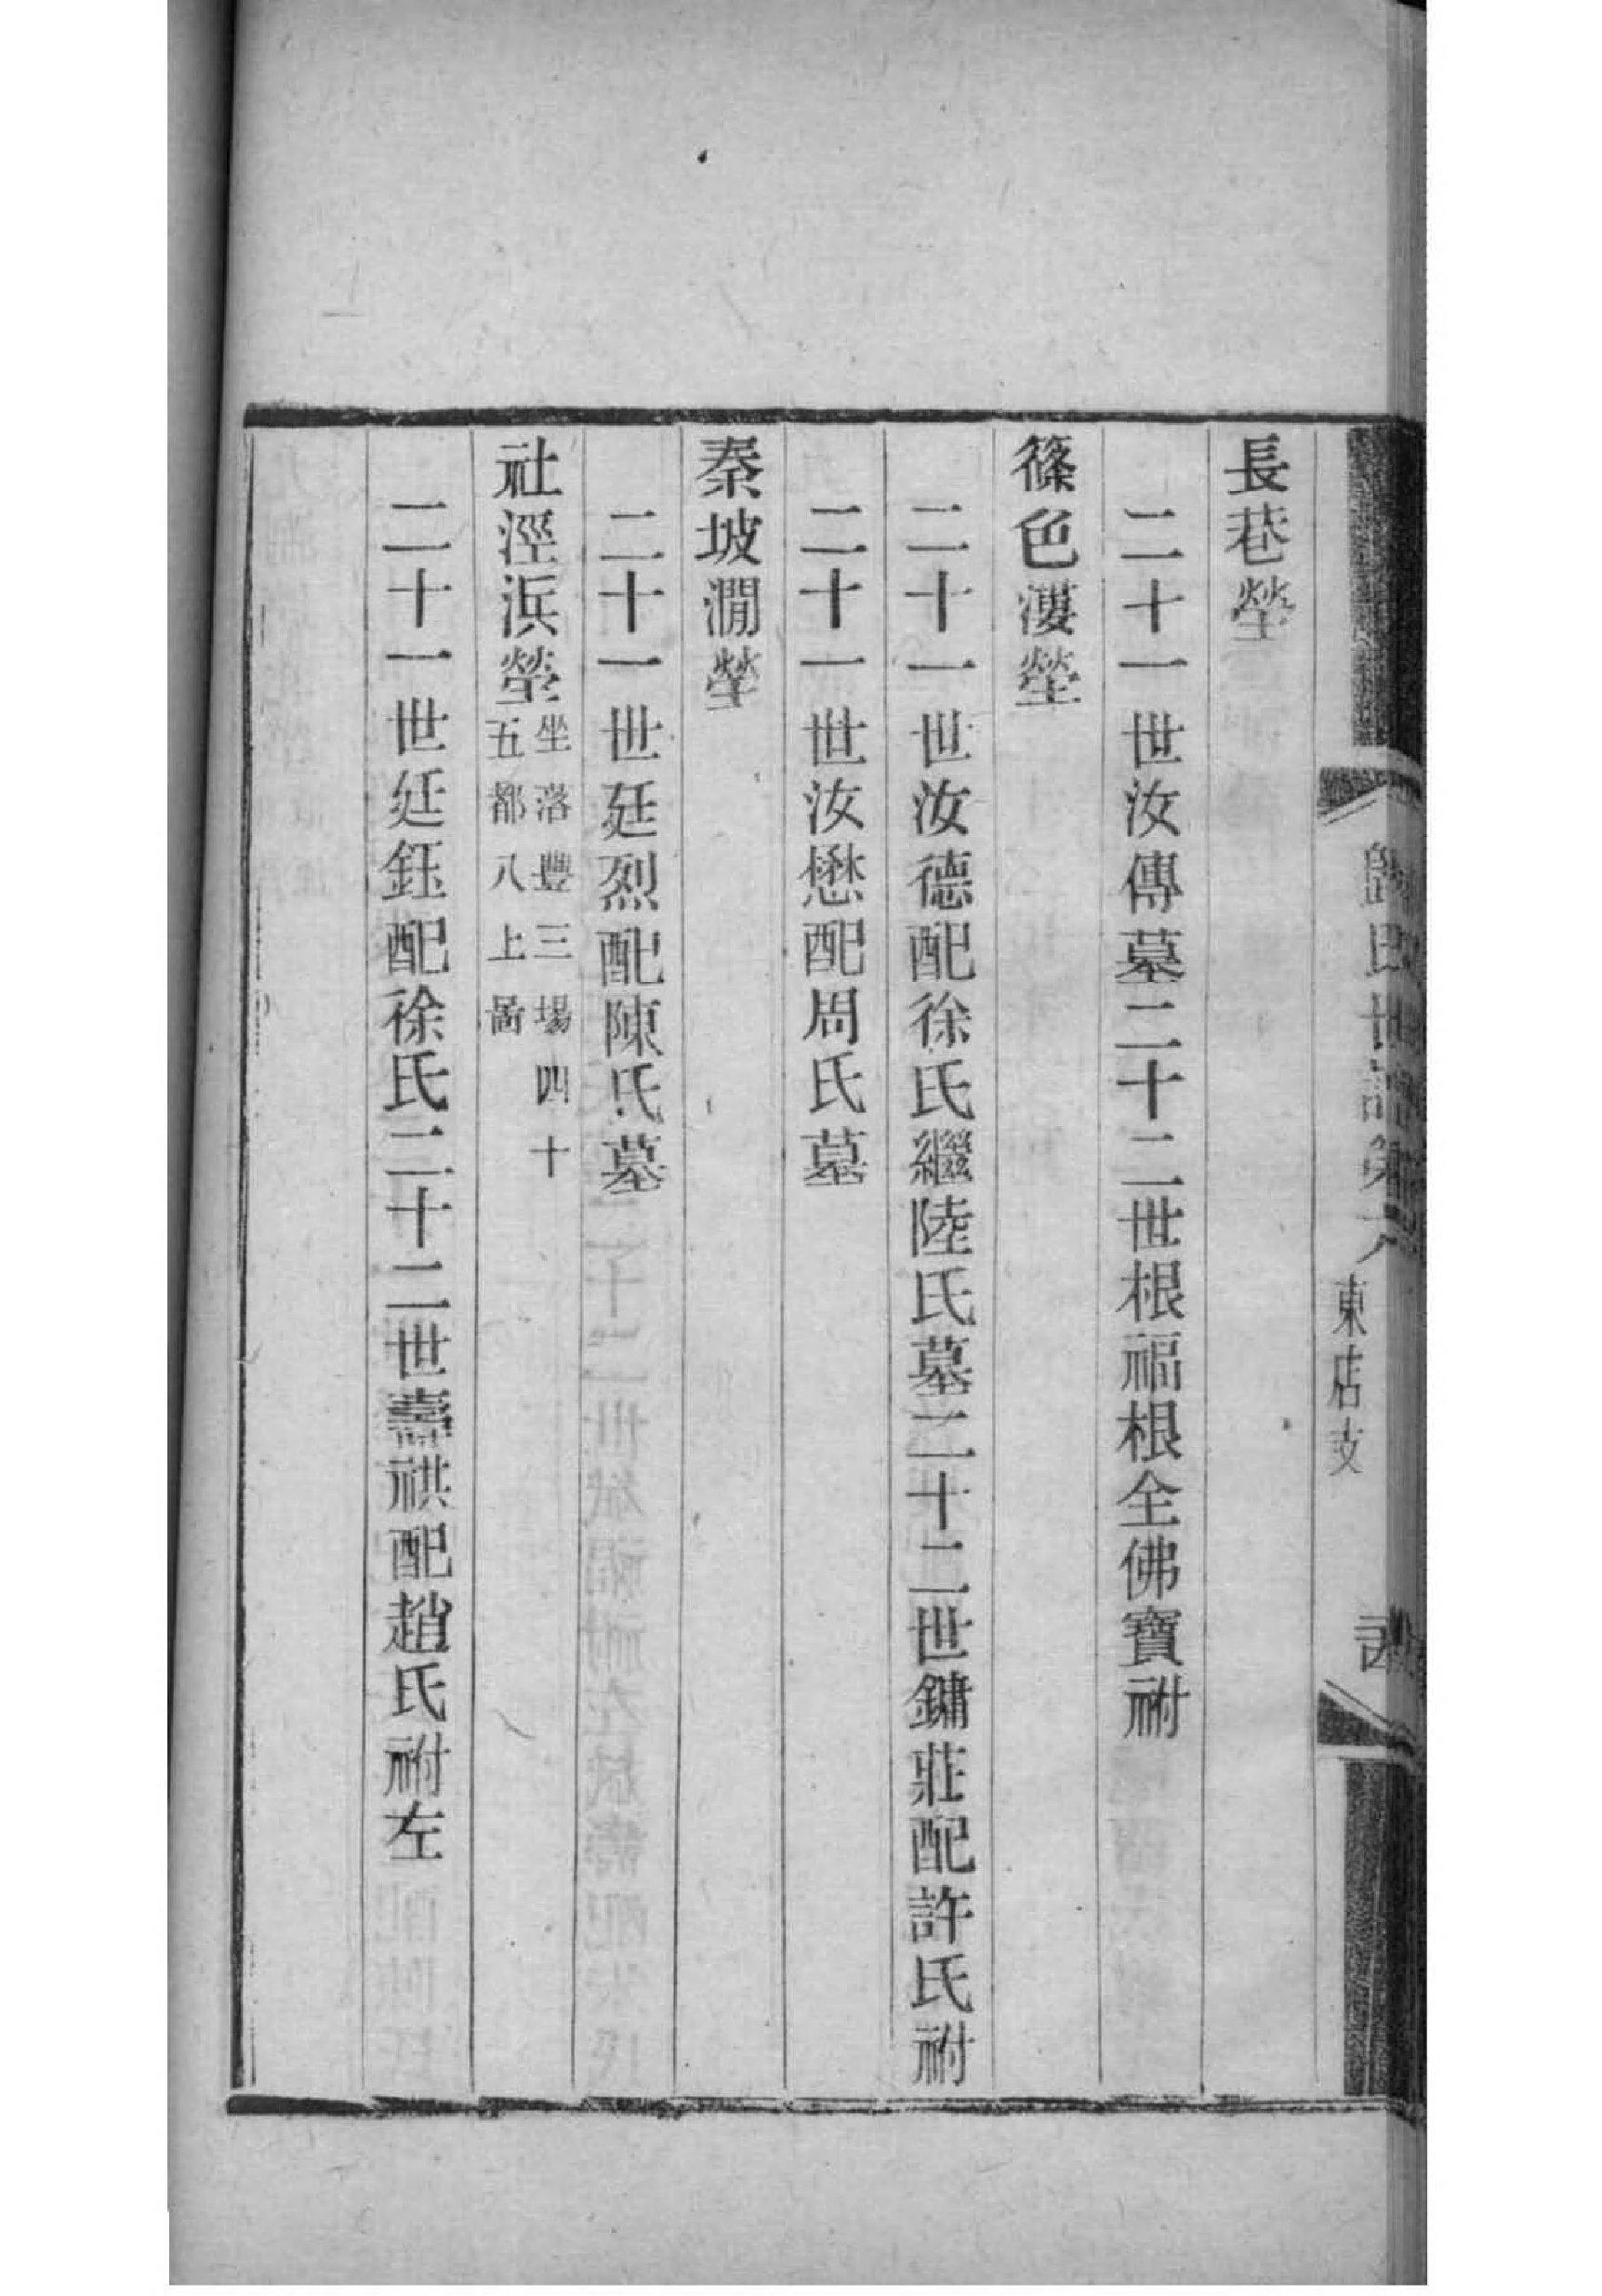 長巷塋
二十一世汝傳墓二十二世根福根全佛寶祔
篠色漊塋
二十一世汝德配徐氏繼陸氏墓二十二世鏞莊配許氏祔
二十一世汝懋配周氏墓
秦坡澗塋
二十一世廷烈配陳氏墓
社涇浜塋坐落豐三場四十五都八上啚
二十一世廷鈺配徐氏二十二世壽祺配趙氏祔左
氏世譜
東店支